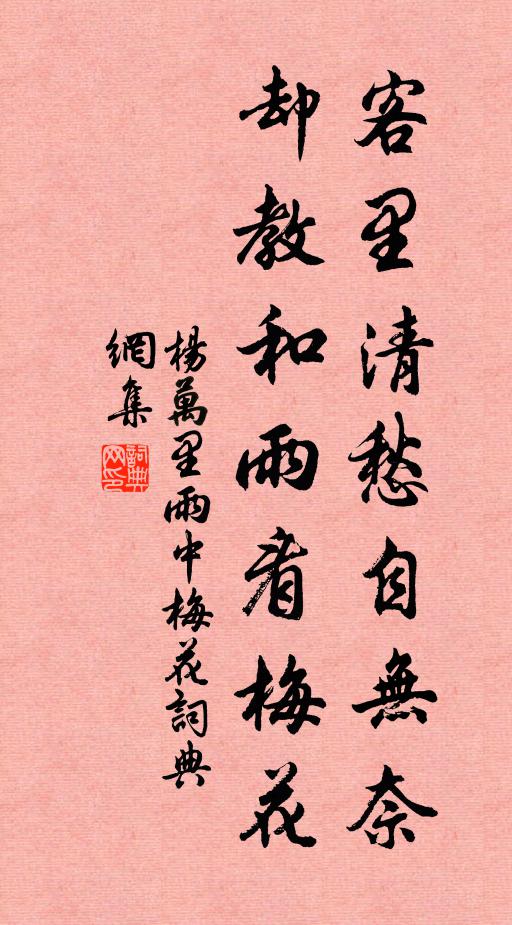 客里清愁自無奈
却教和雨看梅花
楊萬里雨中梅花詞典
網集
詞典
网印